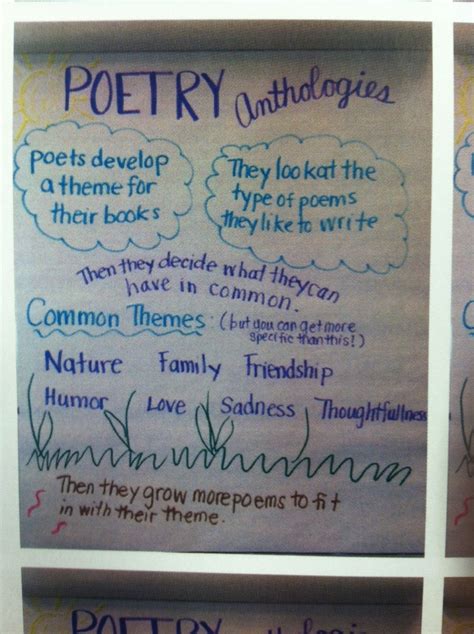 POETRY Anthologies
poets develop
a theme for
their books
They look at the
type of poems
they like to write
Then they decide what they can
have in common.
Common Themes: (but you can get more
specific than this!)
Nature Family Friendship
Humor Love Sadness Thoughtfullness
Then they grow more poems to fit
in with their theme.
POETRY Anthologies